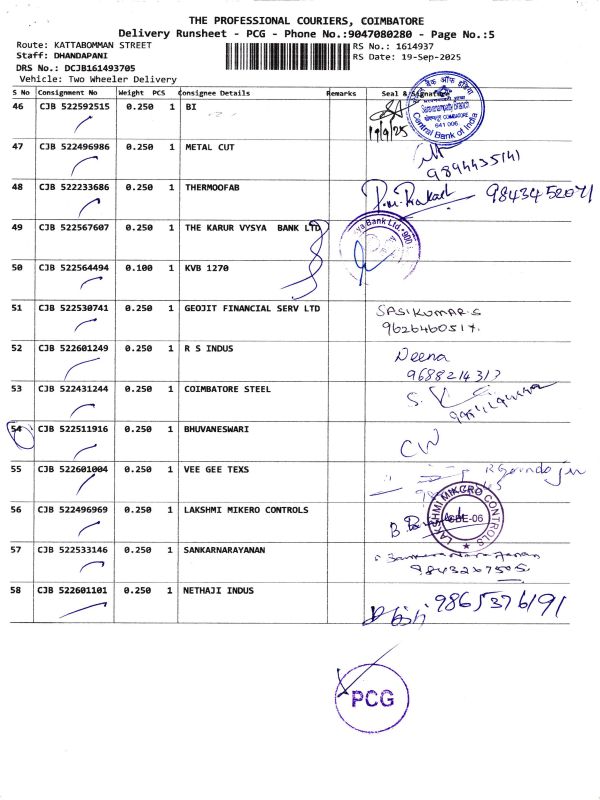 THE PROFESSIONAL COURIERS, COIMBATORE
Delivery Runsheet - PCG - Phone No.:9047080280 - Page No.:5
Route: KATTABOMMAN STREET RS No.: 1614937
Staff: DHANDAPANI RS Date: 19-Sep-2025
DRS No.: DCJB161493705
Vehicle: Two Wheeler Delivery
S No Consignment No Weight PCS Consignee Details Remarks Seal & Signature
46 CJB 522592515 0.250 1 BI
19/9/25
641 006
Central Bank of India
47 CJB 522496986 0.250 1 METAL CUT
9894435141
48 CJB 522233686 0.250 1 THERMOOFAB
P.M. Prakash 9843452071
49 CJB 522567607 0.250 1 THE KARUR VYSYA BANK LTD
ya Bank Ltd.
50 CJB 522564494 0.100 1 KVB 1270
51 CJB 522530741 0.250 1 GEOJIT FINANCIAL SERV LTD
SASIKUMAR.S
9626460517.
52 CJB 522601249 0.250 1 R S INDUS
Neena
9688214317
53 CJB 522431244 0.250 1 COIMBATORE STEEL
54 CJB 522511916 0.250 1 BHUVANESWARI
CW
55 CJB 522601004 0.250 1 VEE GEE TEXS
56 CJB 522496969 0.250 1 LAKSHMI MIKERO CONTROLS
LAKSHMI MIKGRO CONTROLS
CBE-06
57 CJB 522533146 0.250 1 SANKARNARAYANAN
9843267505
58 CJB 522601101 0.250 1 NETHAJI INDUS
9865376191
PCG